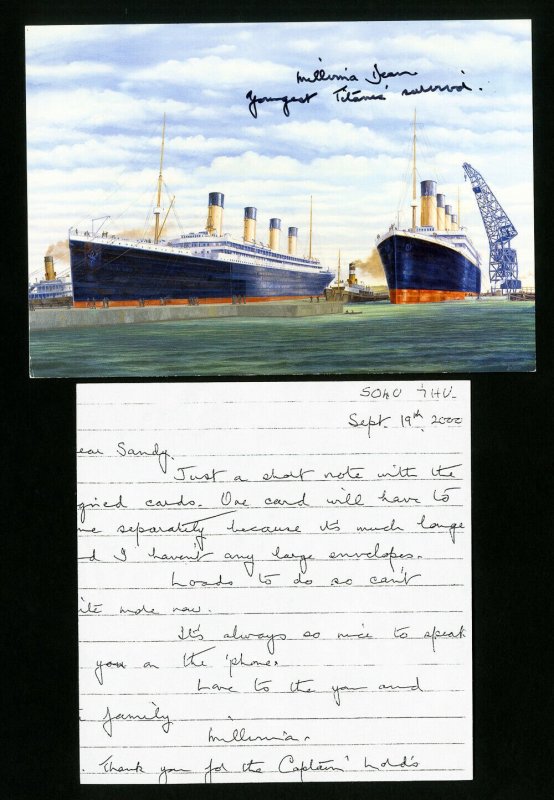 Millvina Dean
Youngest 'Titanic' survivor.
SO40 7HU.
Sept. 19th. 2000
ear Sandy.
Just a short note with the
gned cards. One card will have to
me separately because it's much large
d I haven't any large envelopes.
Loads to do so can't
ite more now.
It's always so nice to speak
you on the 'phone.
Love to the you and
family
Millvina.
. Thank you for the Captain